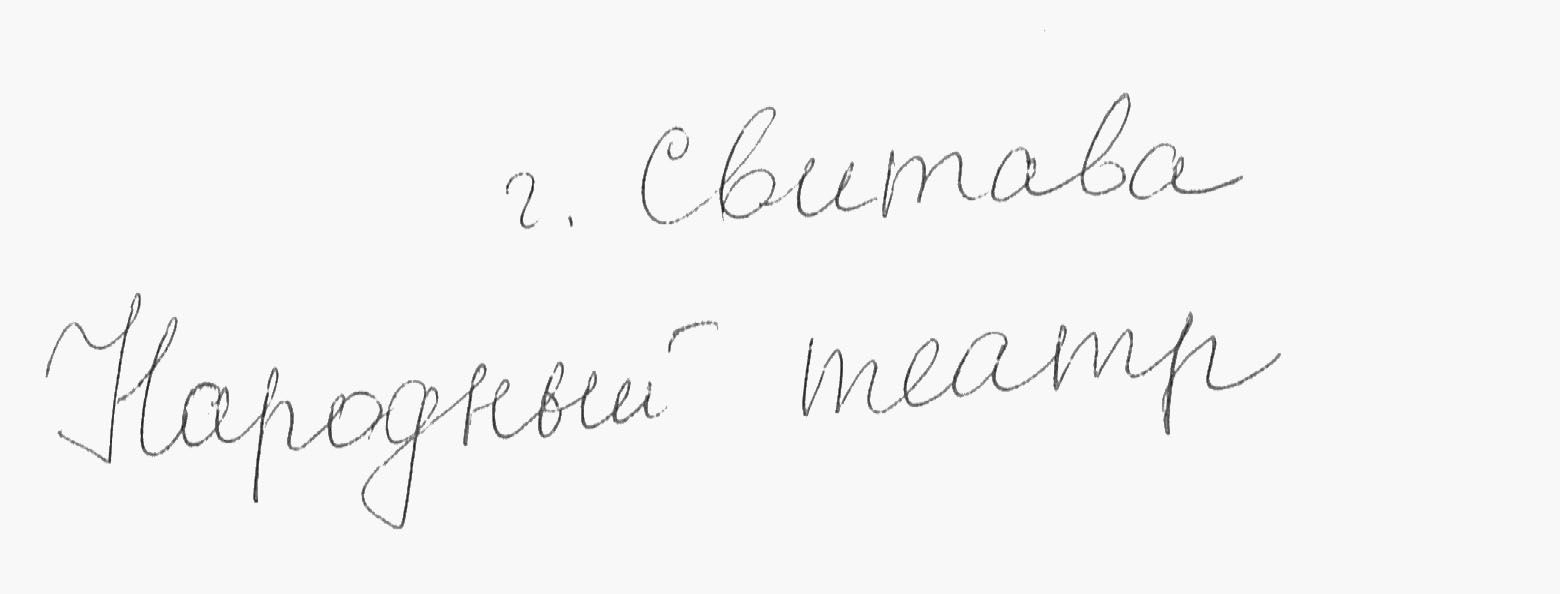 г. Свитава
Народный театр